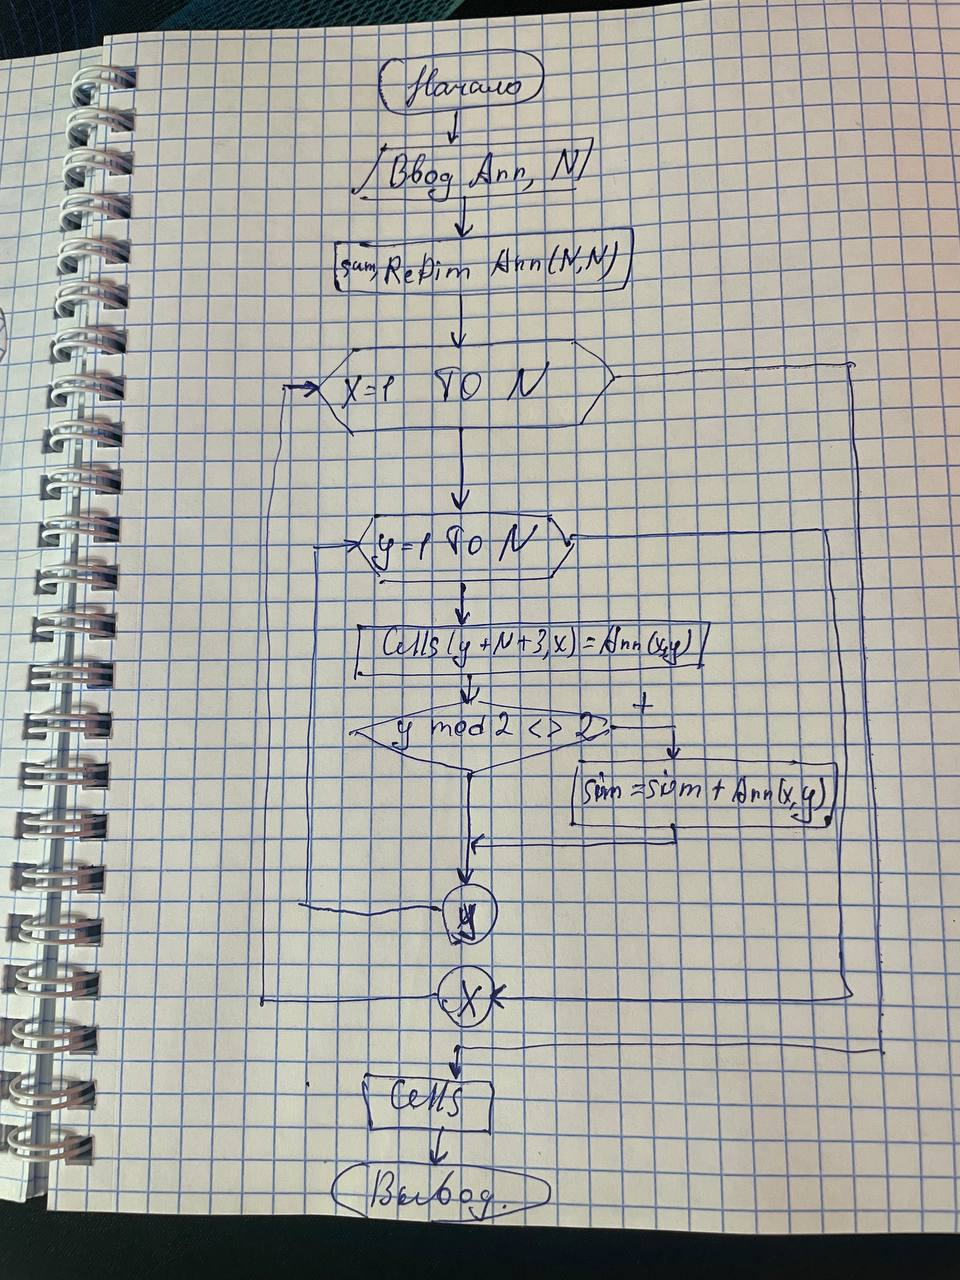 Начало
Ввод Ann, N
sum, ReDim Ann(N,N)
X=1 TO N
y=1 TO N
Cells(y+N+3,x)=Ann(x,y)
+
y mod 2 <> 2
sum=sum+Ann(x,y)
y
X
Cells
Вывод.